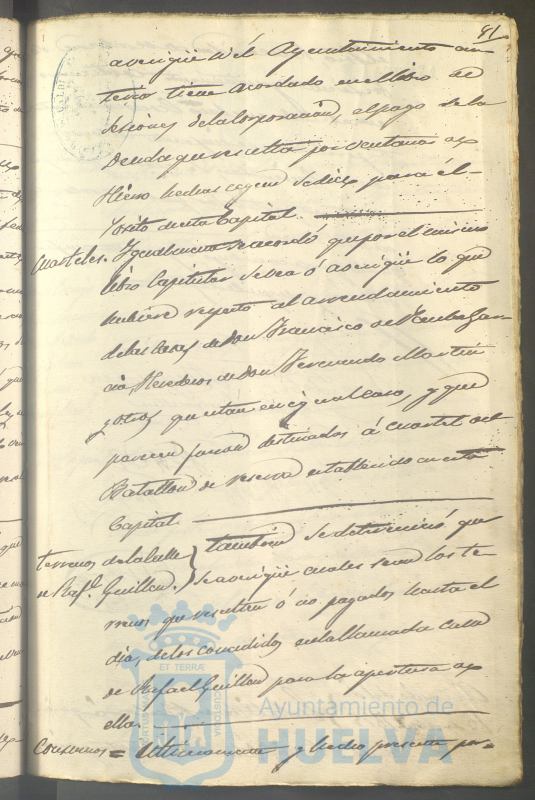 81
averigüe si él Ayuntamiento an-
terior tiene acordado en el libro de
sesiones de la Corporacion, el pago de la
Deuda que resulta por ventanas de
Hierro hechas segun se dice para él
Posito de esta Capital.
Cuarteles. Igualmente se acordó que por el mismo
libro Capitular se vea ó averigüe lo que
hubiere respeto al arrendamiento
de las Casas de Don Francisco de
cia, Herederos de Don Fernando Martin
y otros que estan en igual caso, y que
parecen fueron destinados á cuartel del
Batallon de reserva establecido en esta
Capital
terrenos de la calle
de Rafl. Guillen. tambien se determinó que
se averigüe cuales sean los te-
rrenos que resulten ó no pagados hasta el
dia, de los concedidos en la llamada Calle
de Rafael Guillen para la apertura de
ella.
Consumos = Ultimamente y hecho presente por
ET TERRÆ
Ayuntamiento de
HUELVA